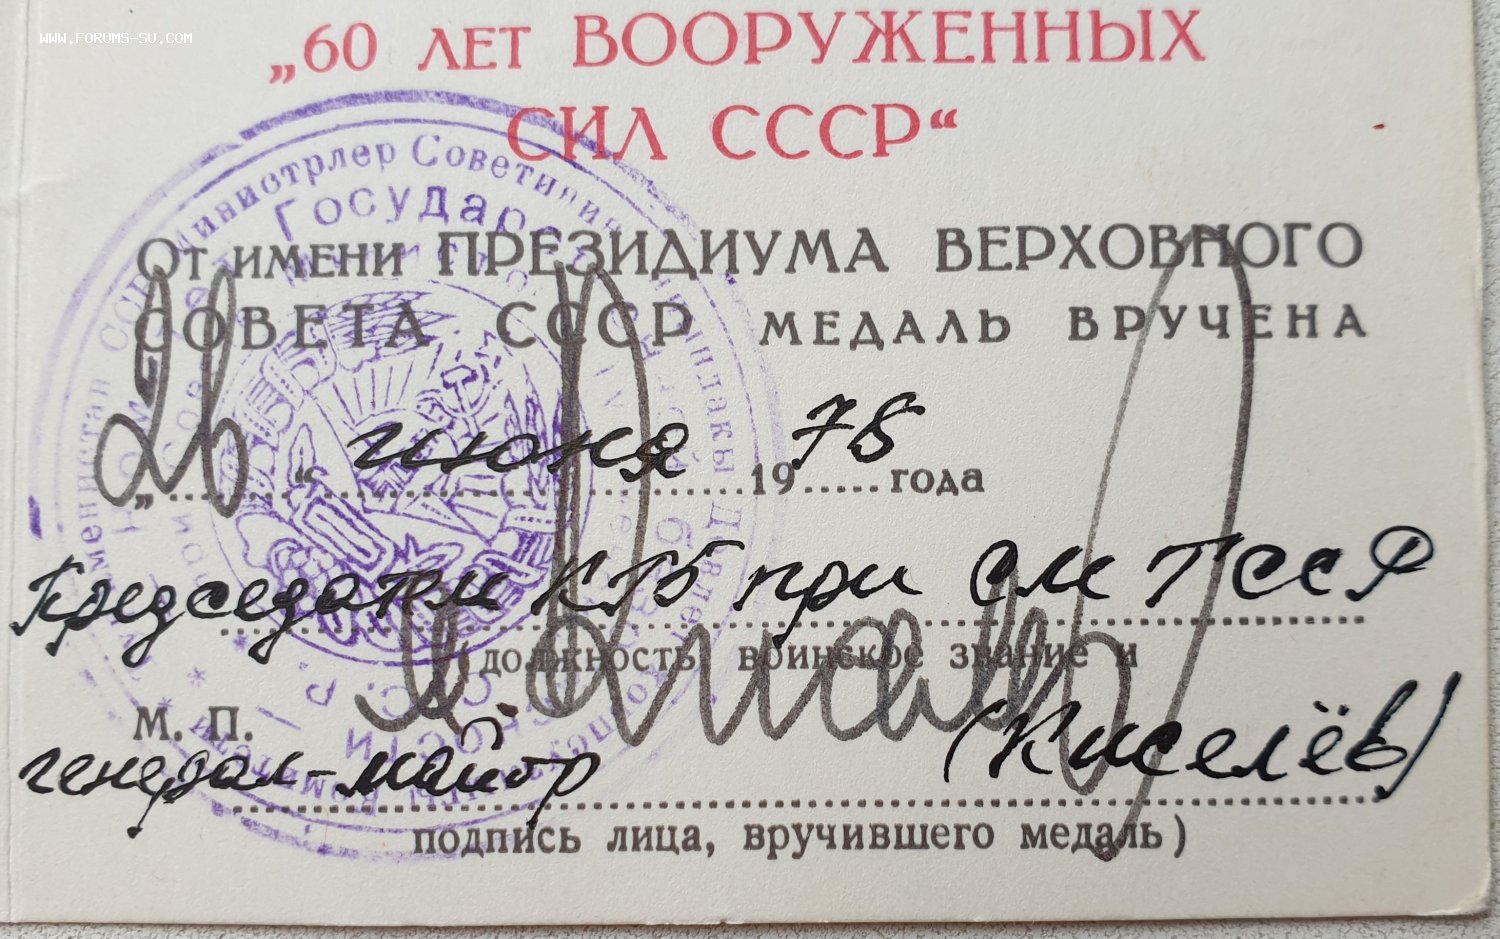 www.forums-su.com
„60 лет ВООРУЖЕННЫХ
СИЛ СССР“
От имени ПРЕЗИДИУМА ВЕРХОВНОГО
СОВЕТА СССР МЕДАЛЬ ВРУЧЕНА
„26“ июня 1978 года
Председатель КГБ при СМ ТССР
(должность, воинское звание и
М. П.
генерал-майор (Киселёв)
подпись лица, вручившего медаль)
Министрлер Советинин
Государ